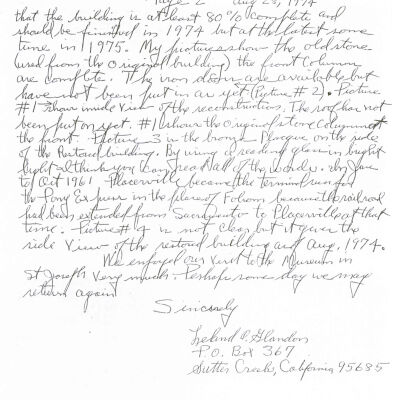 Page 2 Aug 28, 1974
that the building is at least 80% complete and
should be finished in 1974 but at the latest some
time in 1975. My pictures show the old stone
(used from the original building) the front columns
are complete. The iron doors are available but
have not been put in as yet (Picture # 2). Picture
#1 show inside view of the reconstruction. The roof has not
been put on yet. #1 shows the original stone columns at
the front. Picture 3 is the bronze Plaque on the side
of the Restored building. By using a reading glass in bright
light I think you can read all of the words. In June
to Oct 1961 Placerville became the terminal for
the Pony Express in the place of Folsom because the railroad
had been extended from Sacramento to Placerville at that
time. Picture # 4 is not clear but it gives the
side view of the restored building as of Aug. 1974.
We enjoyed our visit to the Museum in
St Joseph very much. Perhaps some day we may
return again
Sincerely
Leland P. Glandon
P.O. Box 367
Sutter Creek, California 95685